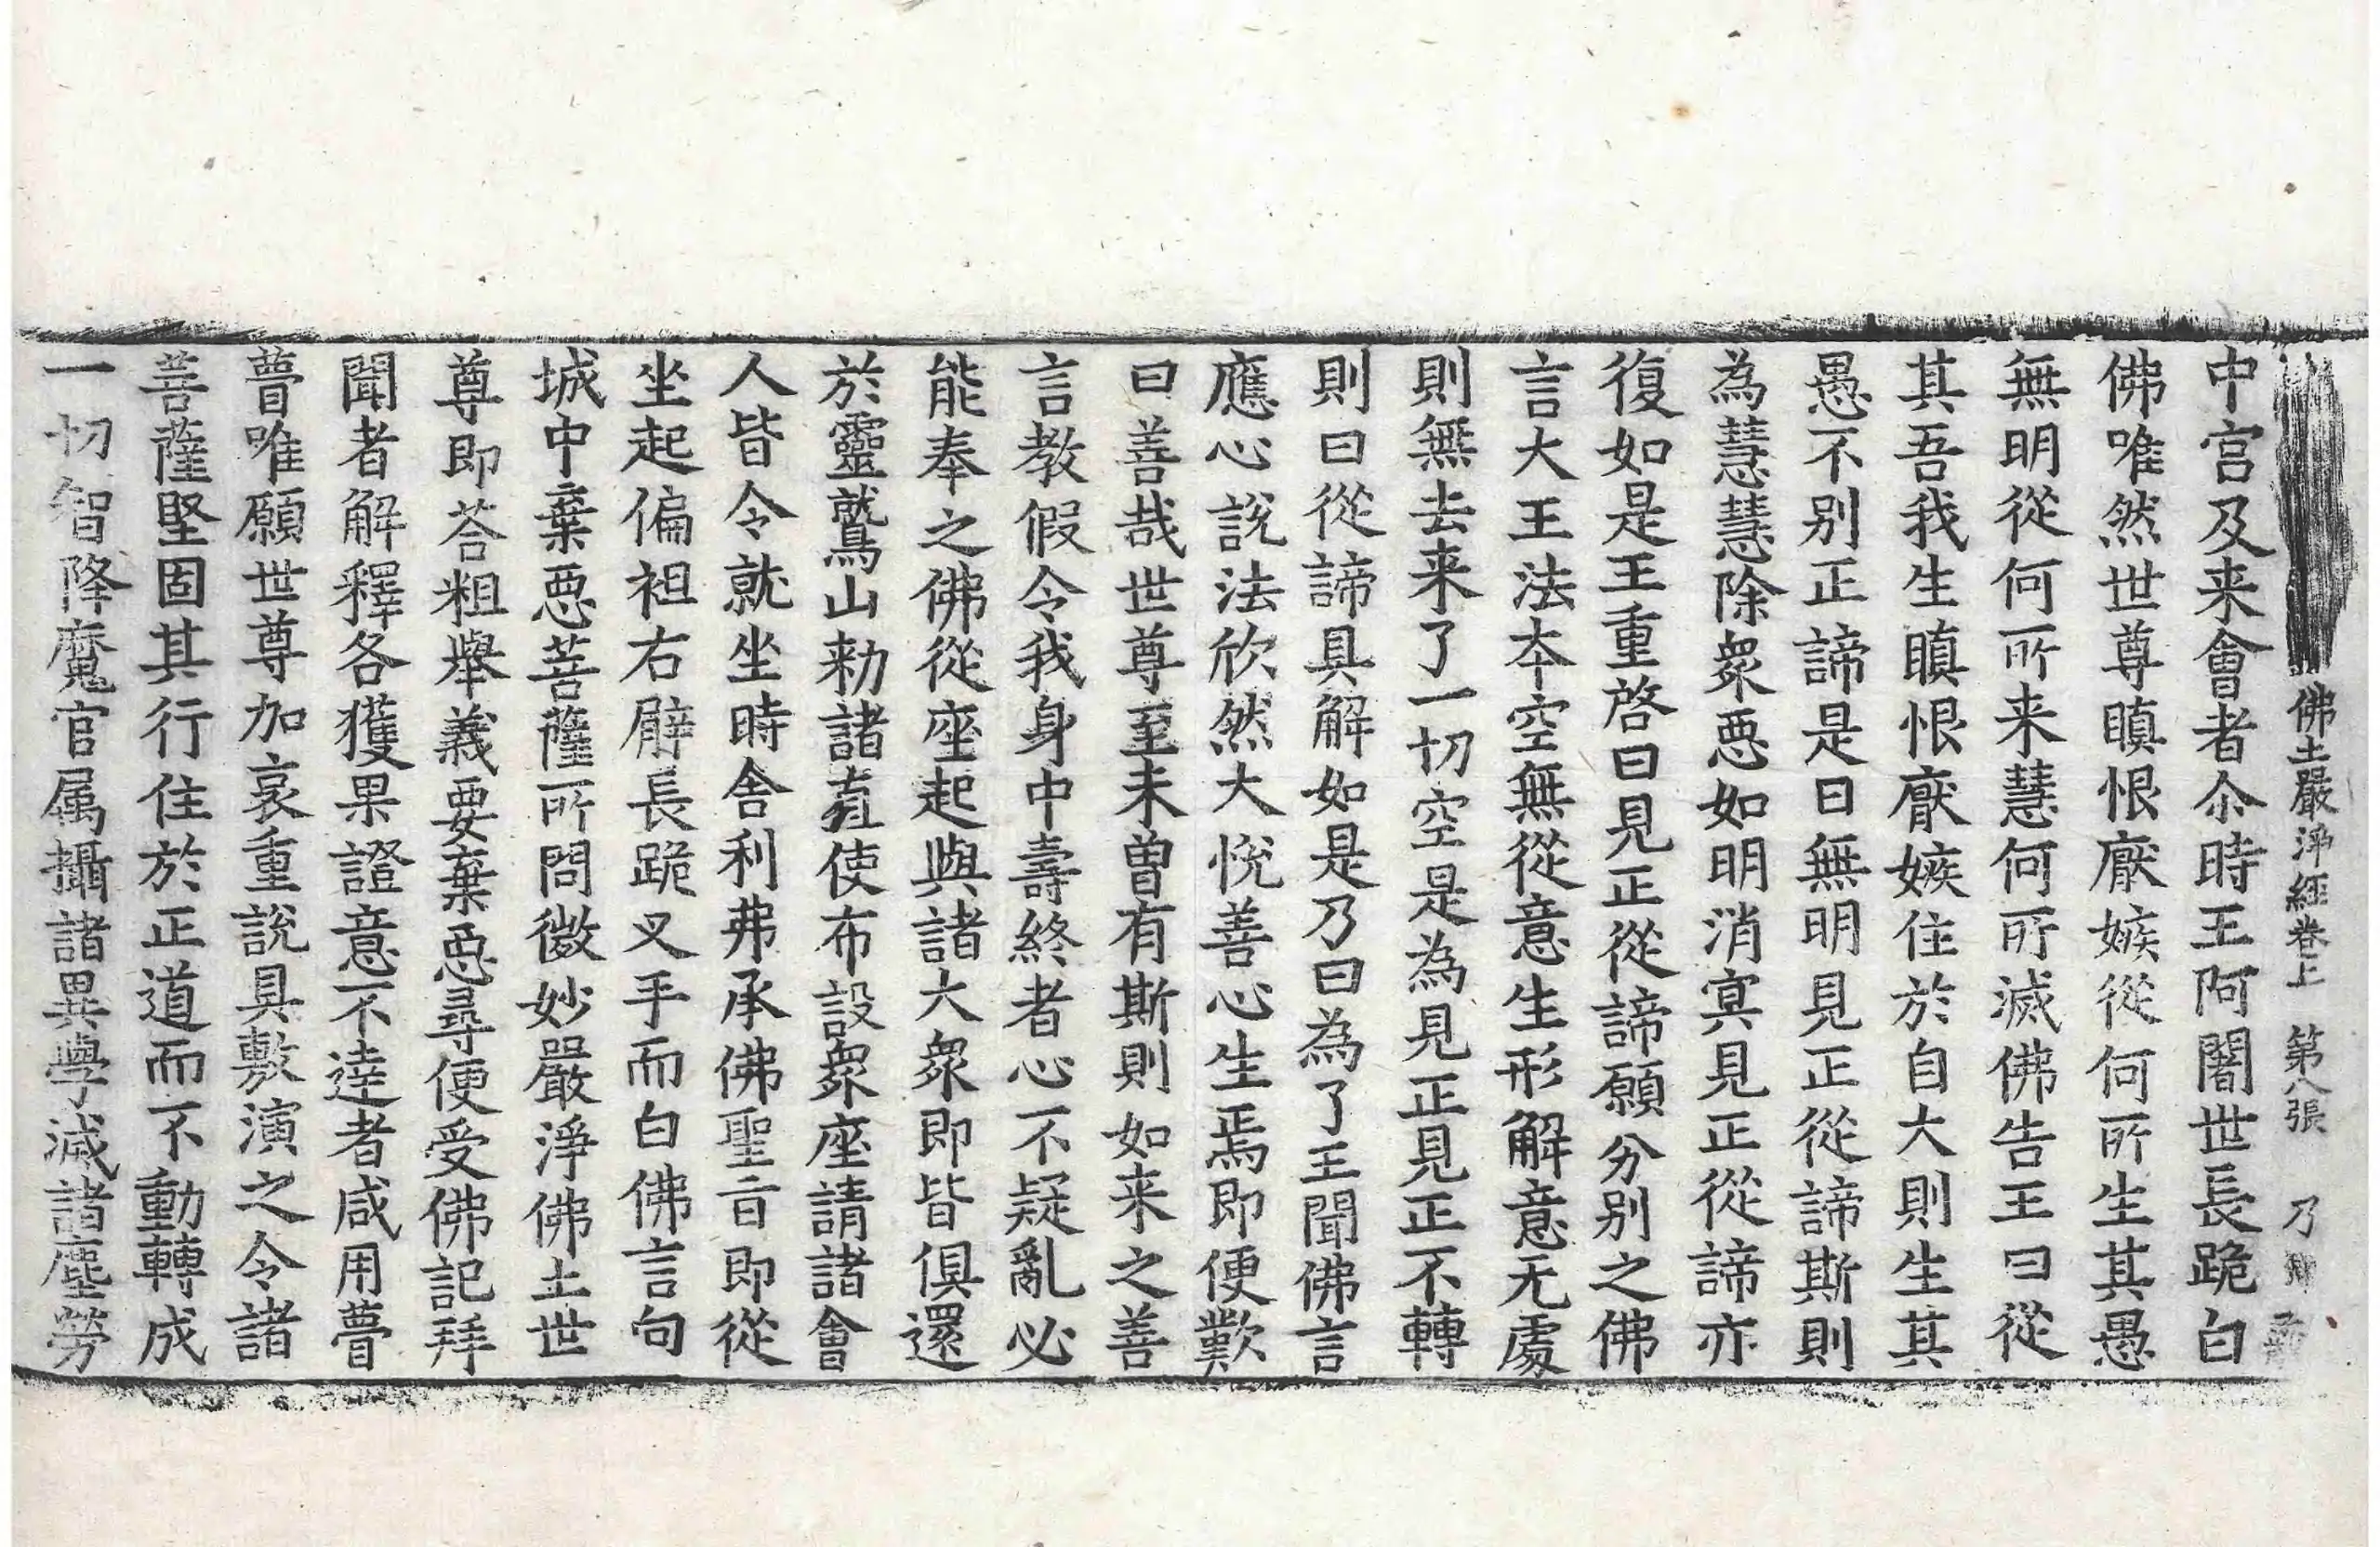 佛土嚴淨經卷上　第八張　乃
中宫及来會者尒時王阿闍世長跪白
佛唯然世尊瞋恨厭嫉從何所生其愚
無明從何所来慧何所滅佛告王曰從
其吾我生瞋恨厭嫉住於自大則生其
愚不别正諦是曰無明見正從諦斯則
為慧慧除衆惡如明消冥見正從諦亦
復如是王重啓曰見正從諦願分别之佛
言大王法夲空無從意生形解意无處
則無去来了一切空是為見正見正不轉
則曰從諦具解如是乃曰為了王聞佛言
應心說法欣然大悅善心生焉即便歎
曰善哉世尊至未曾有斯則如来之善
言教假令我身中壽終者心不疑亂必
能奉之佛從座起與諸大衆即皆俱還
於靈鷲山勑諸真使布設衆座請諸會
人皆令就坐時舍利弗承佛聖旨即從
坐起偏袒右臂長跪叉手而白佛言句
城中棄惡菩薩所問微妙嚴淨佛土世
尊即荅粗舉義要棄惡尋便受佛記拜
聞者解釋各獲果證意不達者咸用瞢
瞢唯願世尊加哀重說具敷演之令諸
菩薩堅固其行住於正道而不動轉成
一切智降魔官属攝諸異學滅諸塵勞